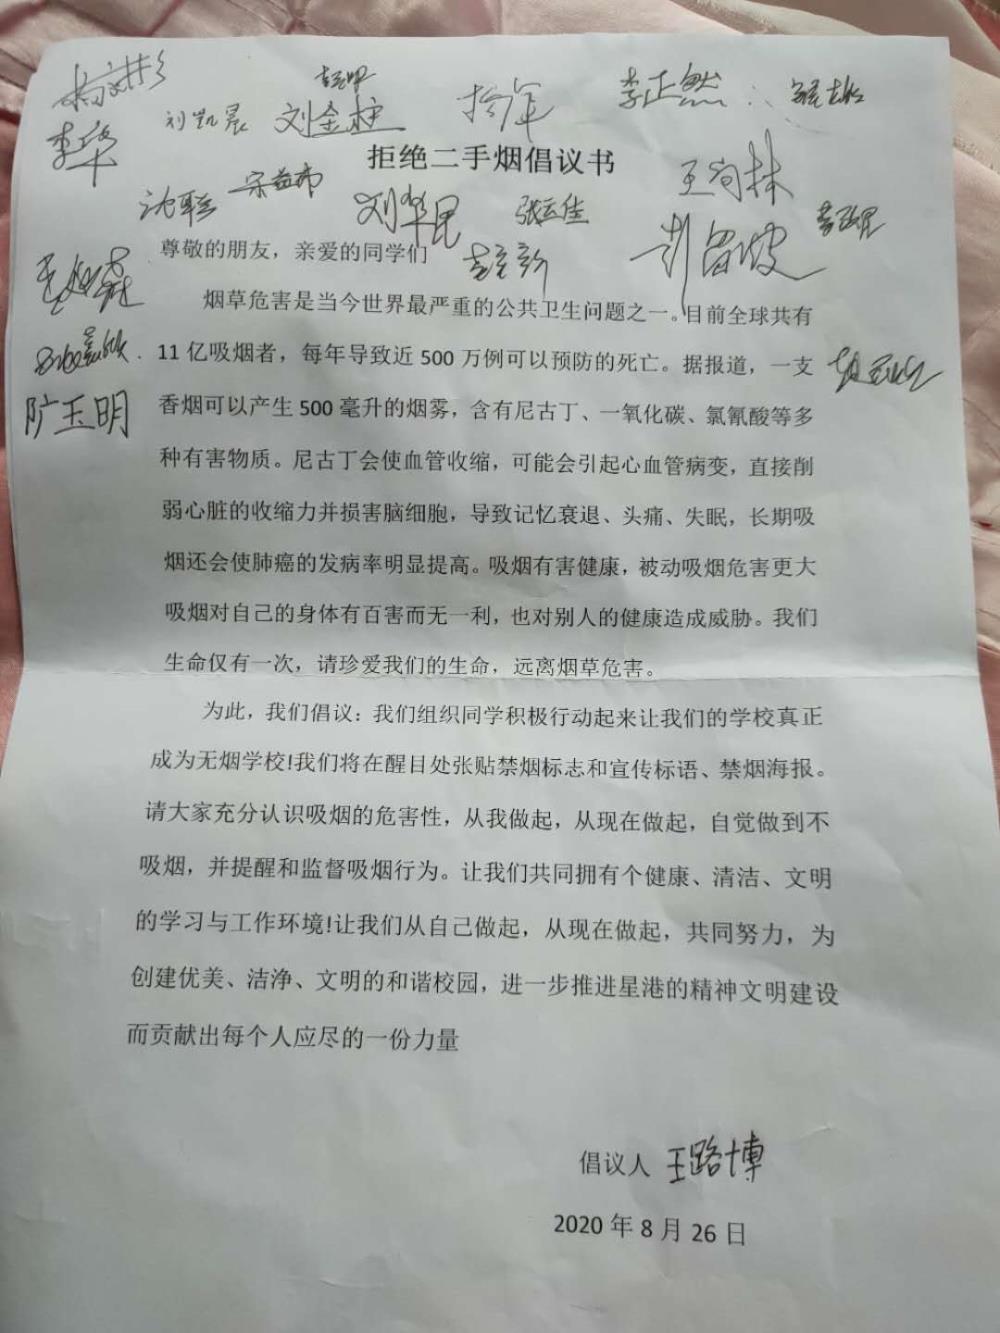 刘凯晨
李正然
李华
拒绝二手烟倡议书
刘华民
张云佳
尊敬的朋友，亲爱的同学们
烟草危害是当今世界最严重的公共卫生问题之一。目前全球共有
11 亿吸烟者，每年导致近 500 万例可以预防的死亡。据报道，一支
邝玉明
香烟可以产生 500 毫升的烟雾，含有尼古丁、一氧化碳、氯氰酸等多
种有害物质。尼古丁会使血管收缩，可能会引起心血管病变，直接削
弱心脏的收缩力并损害脑细胞，导致记忆衰退、头痛、失眠，长期吸
烟还会使肺癌的发病率明显提高。吸烟有害健康，被动吸烟危害更大
吸烟对自己的身体有百害而无一利，也对别人的健康造成威胁。我们
生命仅有一次，请珍爱我们的生命，远离烟草危害。
为此，我们倡议：我们组织同学积极行动起来让我们的学校真正
成为无烟学校!我们将在醒目处张贴禁烟标志和宣传标语、禁烟海报。
请大家充分认识吸烟的危害性，从我做起，从现在做起，自觉做到不
吸烟，并提醒和监督吸烟行为。让我们共同拥有个健康、清洁、文明
的学习与工作环境!让我们从自己做起，从现在做起，共同努力，为
创建优美、洁净、文明的和谐校园，进一步推进星港的精神文明建设
而贡献出每个人应尽的一份力量
倡议人 王路博
2020 年 8 月 26 日